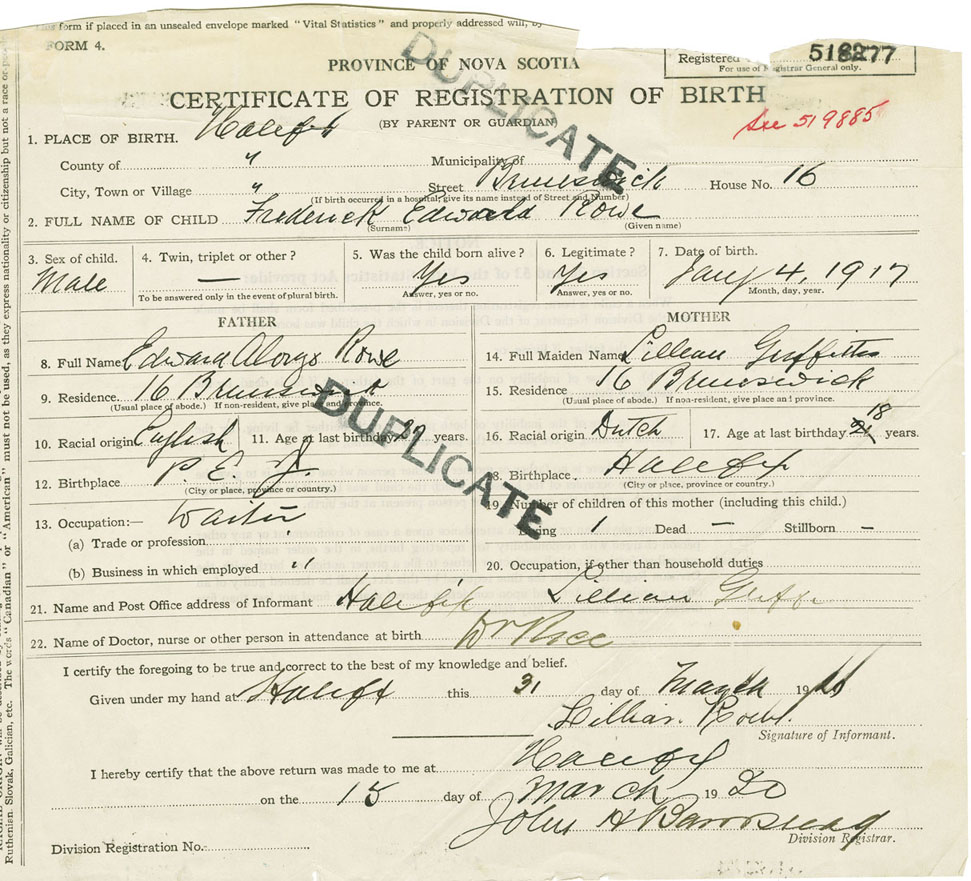 This form if placed in an unsealed envelope marked "Vital Statistics" and properly addressed will, by
FORM 4.
PROVINCE OF NOVA SCOTIA
Registered
For use of Registrar General only.
DUPLICATE
CERTIFICATE OF REGISTRATION OF BIRTH
(BY PARENT OR GUARDIAN)
See 519885
1. PLACE OF BIRTH. Halifax
County of "
Municipality of
City, Town or Village "
Street Brunswick House No. 16
(If birth occurred in a hospital, give its name instead of Street and Number)
2. FULL NAME OF CHILD Frederick Edward Rowe
(Surname) (Given name)
3. Sex of child. Male
4. Twin, triplet or other? —
To be answered only in the event of plural birth.
5. Was the child born alive? Yes
Answer, yes or no.
6. Legitimate? Yes
Answer, yes or no.
7. Date of birth. Jany 4, 1917
Month, day, year.
FATHER
8. Full Name Edward Rowe
9. Residence. 16 Brunswick
(Usual place of abode.) If non-resident, give place and province.
10. Racial origin English
11. Age at last birthday years.
12. Birthplace P. E. I
(City or place, province or country.)
13. Occupation:— Waiter
(a) Trade or profession "
(b) Business in which employed "
DUPLICATE
MOTHER
14. Full Maiden Name Lillian Griffiths
15. Residence. 16 Brunswick
(Usual place of abode.) If non-resident, give place and province.
16. Racial origin Dutch
17. Age at last birthday 18 years.
18. Birthplace. Halifax
(City or place, province or country.)
19. Number of children of this mother (including this child.)
Living 1 Dead — Stillborn —
20. Occupation, if other than household duties
21. Name and Post Office address of Informant Halifax Lillian
22. Name of Doctor, nurse or other person in attendance at birth Dr Rice
I certify the foregoing to be true and correct to the best of my knowledge and belief.
Given under my hand at Halifax this 31 day of March 19
Lillian Rowe.
Signature of Informant.
I hereby certify that the above return was made to me at Halifax
on the 15 day of March 1920
John A
Division Registrar.
Division Registration No.
Ruthenian, Slovak, Galician, etc. The words "Canadian" or "American" must not be used, as they express nationality or citizenship but not a race or